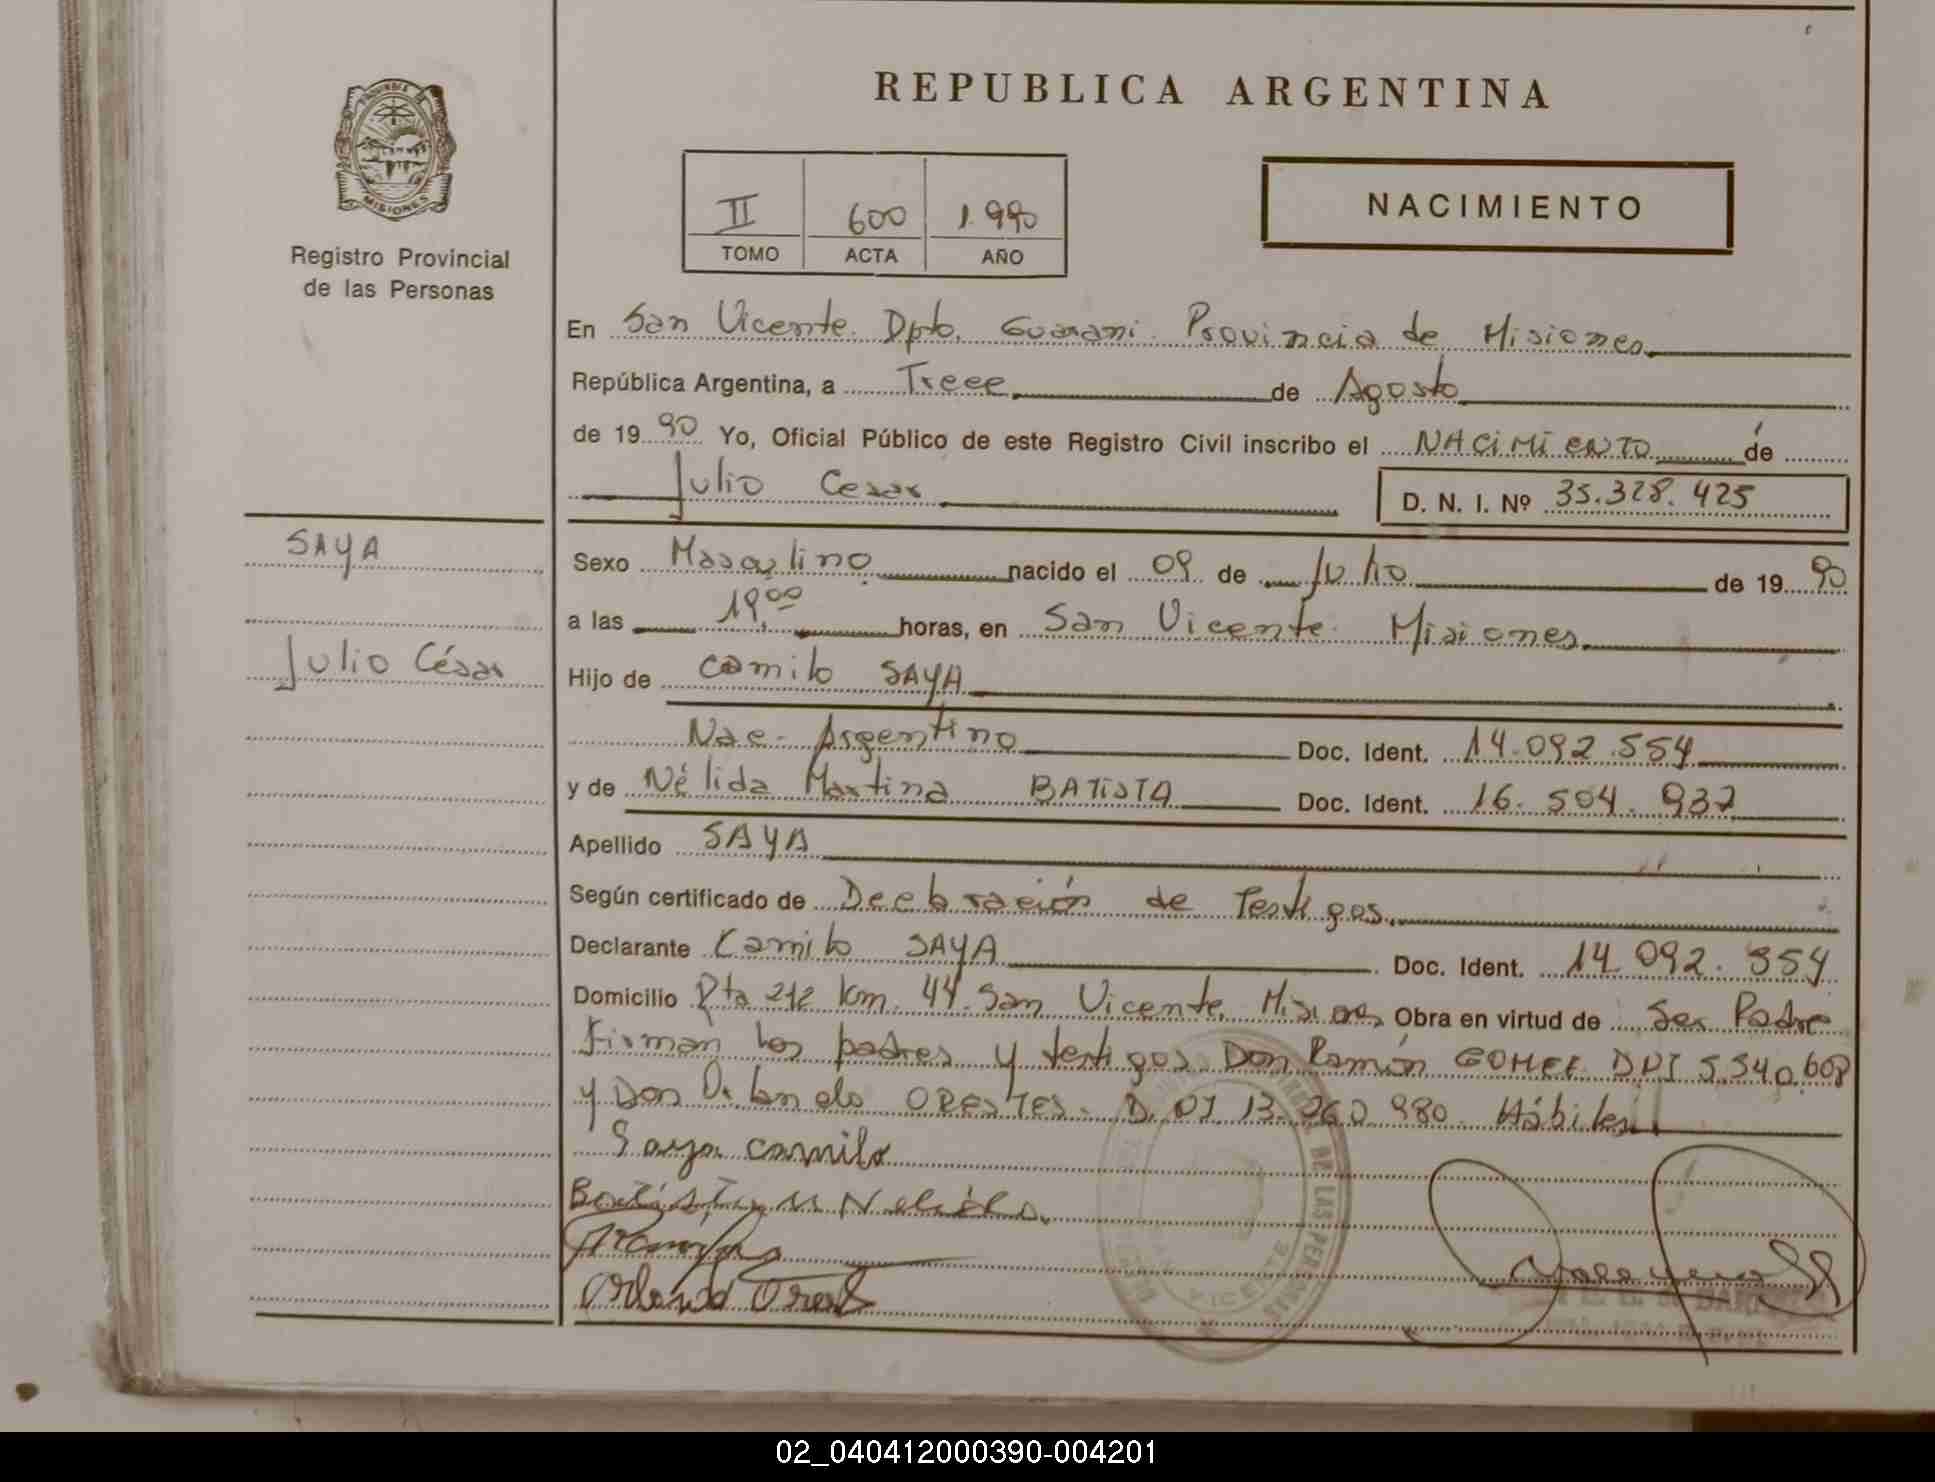 REPUBLICA ARGENTINA
PROVINCIA DE
MISIONES
Registro Provincial
de las Personas
II 600 1.990
TOMO ACTA AÑO
NACIMIENTO
En San Vicente. Dpto. Guarani. Provincia de Misiones
República Argentina, a Trece de Agosto
de 1990 Yo, Oficial Público de este Registro Civil inscribo el NACIMIENTO de
Julio Cesar D. N. I. Nº 35.328.425
SAYA
Julio César
Sexo Masculino nacido el 09 de Julio de 1990
a las 19,00 horas, en San Vicente. Misiones
Hijo de Camilo SAYA
Nac. Argentino Doc. Ident. 14.092.554
y de Nélida Martina BATISTA Doc. Ident. 16.504.937
Apellido SAYA
Según certificado de Declaración de Testigos
Declarante Camilo SAYA Doc. Ident. 14.092.354
Domicilio Rta 212 Km. 44. San Vicente. Misiones Obra en virtud de Ser Padre
Firman los padres y testigos Don Ramón GOMEZ DNI 5.540.608
y Don Orlando ORESTES. D.NI 13.260.980. Hábiles
Saya camilo
Batista M Nelida
Orlando Orest
DE LAS PERSONAS
VICENTE
02_040412000390-004201